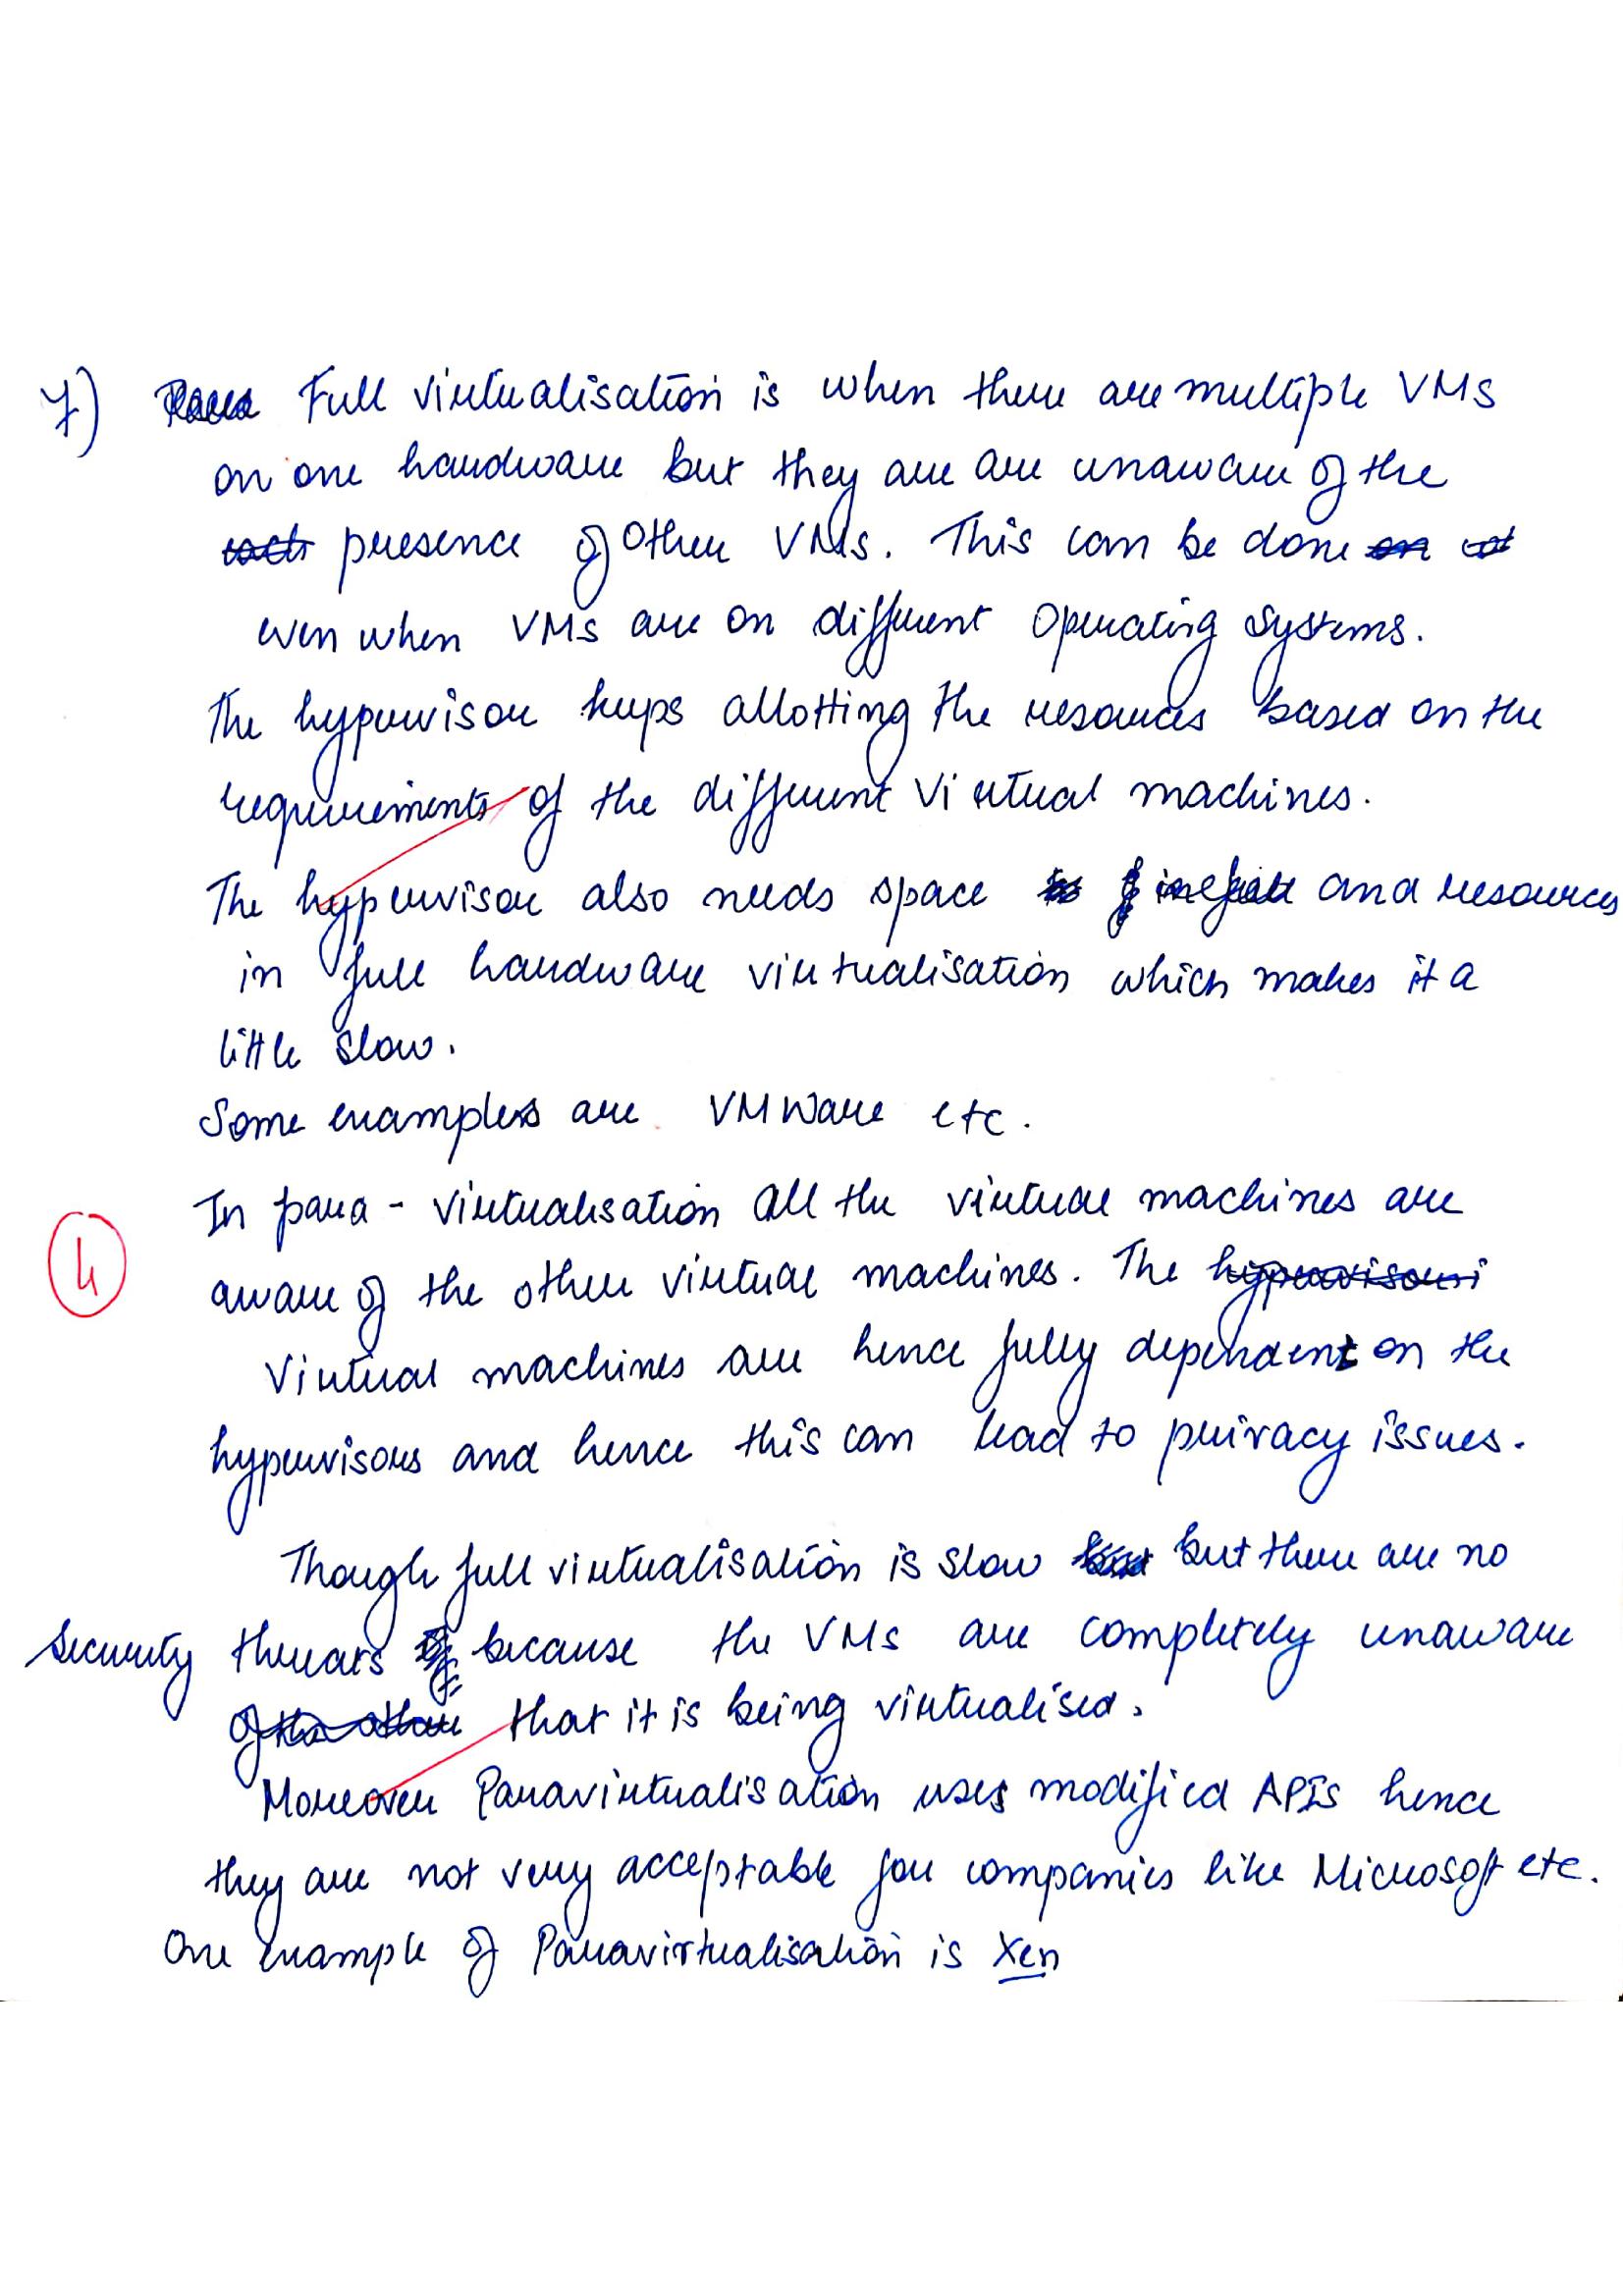 7) Full virtualisation is when there are multiple VMs
on one hardware but they are are unaware of the
presence of other VMs. This can be done
even when VMs are on different Operating Systems.
The hypervisor keeps allotting the resources based on the
requirements of the different Virtual machines.
The hypervisor also needs space and resources
in full hardware virtualisation which makes it a
little slow.
Some examples are VMWare etc.
In para - virtualisation all the virtual machines are
4
aware of the other virtual machines. The hypervisor
Virtual machines are hence fully dependent on the
hypervisors and hence this can lead to privacy issues.
Though full virtualisation is slow but there are no
Security threats because the VMs are completely unaware
of the other that it is being virtualised.
Moreover Paravirtualisation uses modified APIs hence
they are not very acceptable for companies like Microsoft etc.
One example of Paravirtualisation is Xen